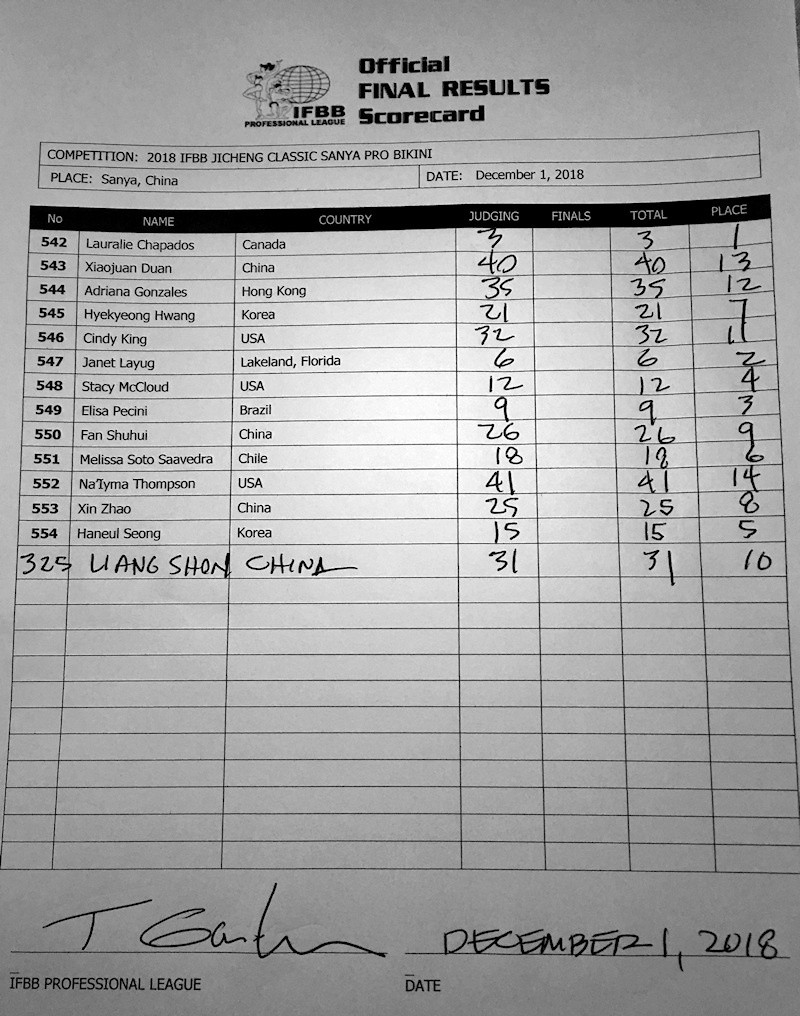 Official
FINAL RESULTS
Scorecard
IFBB
PROFESSIONAL LEAGUE
COMPETITION: 2018 IFBB JICHENG CLASSIC SANYA PRO BIKINI
PLACE: Sanya, China DATE: December 1, 2018
No NAME COUNTRY JUDGING FINALS TOTAL PLACE
542 Lauralie Chapados Canada 3 3 1
543 Xiaojuan Duan China 40 40 13
544 Adriana Gonzales Hong Kong 35 35 12
545 Hyekyeong Hwang Korea 21 21 7
546 Cindy King USA 32 32 11
547 Janet Layug Lakeland, Florida 6 6 2
548 Stacy McCloud USA 12 12 4
549 Elisa Pecini Brazil 9 9 3
550 Fan Shuhui China 26 26 9
551 Melissa Soto Saavedra Chile 18 18 6
552 Na'Iyma Thompson USA 41 41 14
553 Xin Zhao China 25 25 8
554 Haneul Seong Korea 15 15 5
325 LIANG SHON CHINA 31 31 10
DECEMBER 1, 2018
IFBB PROFESSIONAL LEAGUE DATE